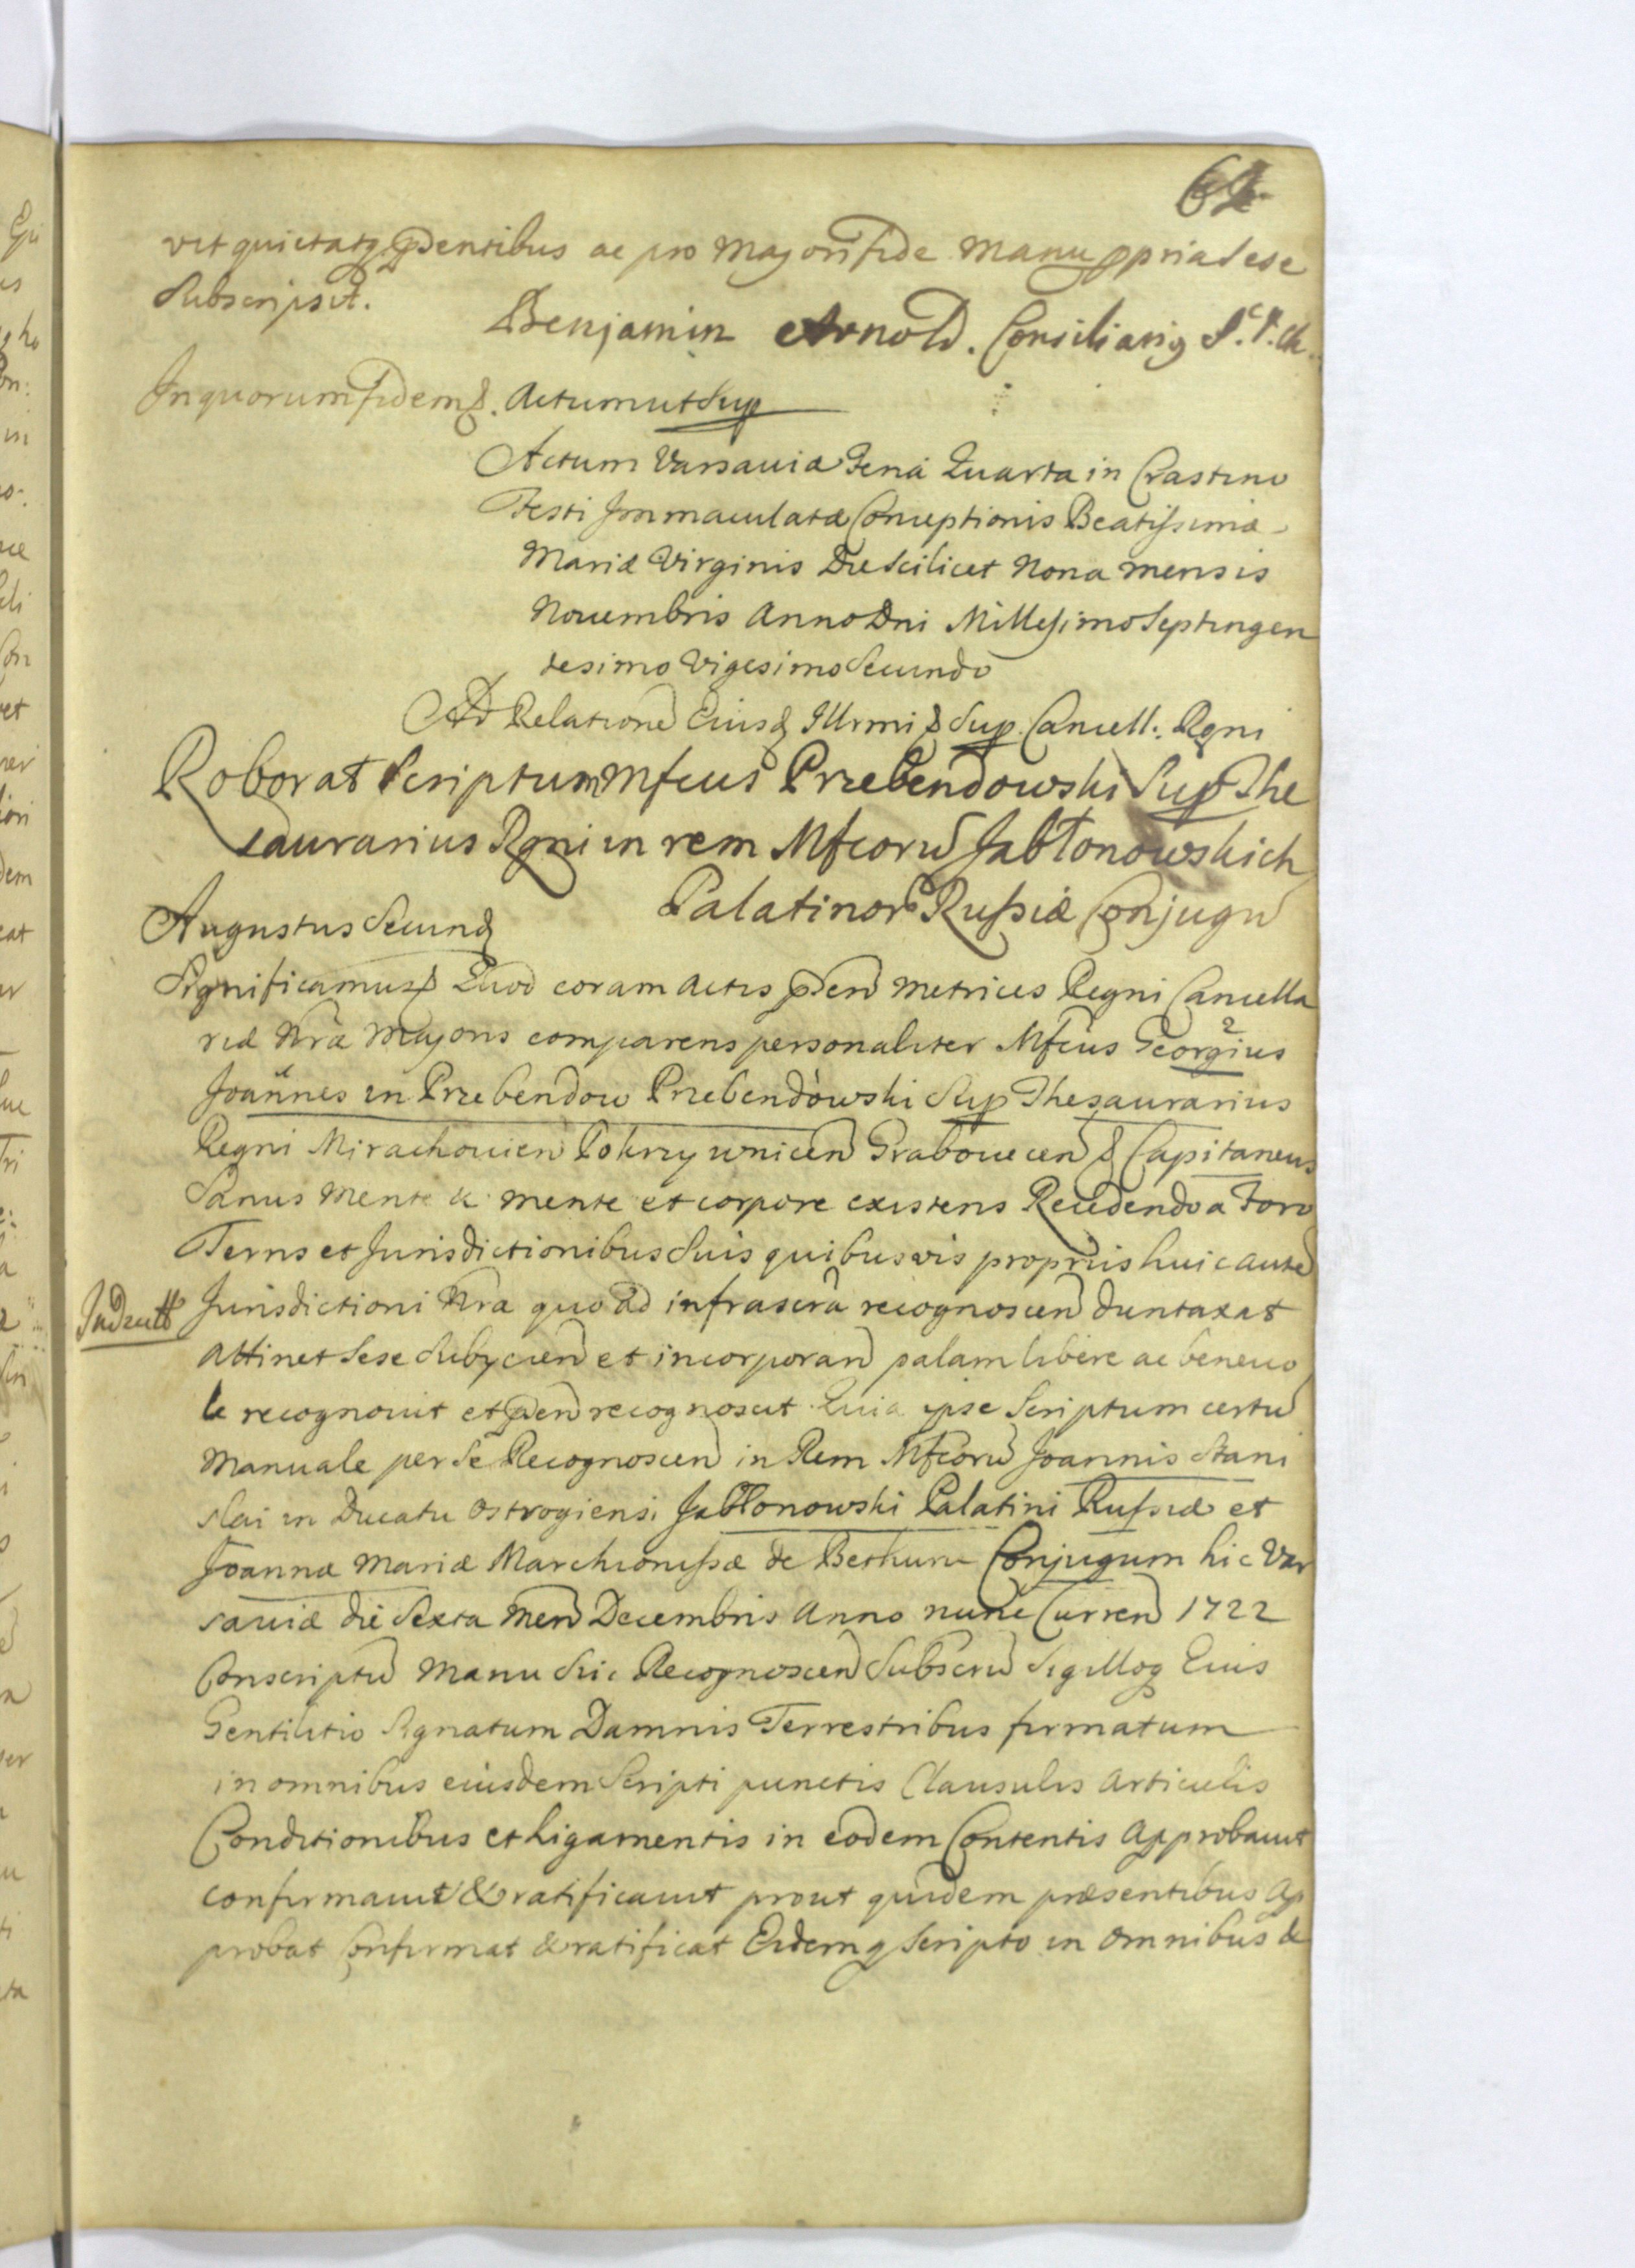 62
vit quietatq pdentibus ac pro Majori fide Manu ppria Sese
Subscripsit.
Benjamin Arnold. Consiliariq S.
In quorum fidem &. Actum ut Sup
Actum Varsaviæ Feria Quarta in Crastino
Festi Immaculatæ Conceptionis Beatissimæ
Mariæ Virginis Die Scilicet Nona mensis
Novembris Anno Dni Millesimo Septingen
tesimo Vigesimo Secundo
Ad Relatione Eiusd Illrmi & Sup. Cancell: Rgni
Roborat Scriptum Mfcus Przebendowski Sup The
saurarius Rgni in rem Mfcorū Jabłonowskich
Palatinor Russiæ Conjugū
Augustus Secund
Significamus & Quod coram Actis pden Metrices Regni Cancella
riæ Nræ Majoris comparens personaliter Mfcus Georgius
Joannes in Przebendow Przebendowski Sup Thesaurarius
Regni Mirachowien Pokrzywnicen Grabowecen & Capitaneus
Sanus Mente & mente et corpore existens Recedendo a Foro
Terris et Jurisdictionibus Suis quibusvis propriis huic aute
Jurisdictioni Nræ quo ad infrascra recognoscen duntaxat
attinet Sese Subycien et incorporan palam libere ac benevo
le recognovit et pden recognoscit Quia ipse Scriptum certū
Manuale per Se Recognoscen in Rem Mfcorū Joannis Stani
slai in Ducatu Ostrogiensi Jabłonowski Palatini Russiæ et
Joannæ Mariæ Marchionissæ de Bethune Conjugum hic Var
saviæ die Sexta Men Decembris Anno nunc Curren 1722
Conscriptū Manu Sui Recognoscen Subscrū Sigilloq Eius
Gentilitio Signatum Damnis Terrestribus firmatum
in omnibus eiusdem Scripti punctis Clausulis Articulis
Conditionibus et Ligamentis in eodem Contentis Approbavit
confirmavit & ratificavit prout quidem præsentibus Ap
probat Confirmat & ratificat Eidemq Scripto in Omnibus &